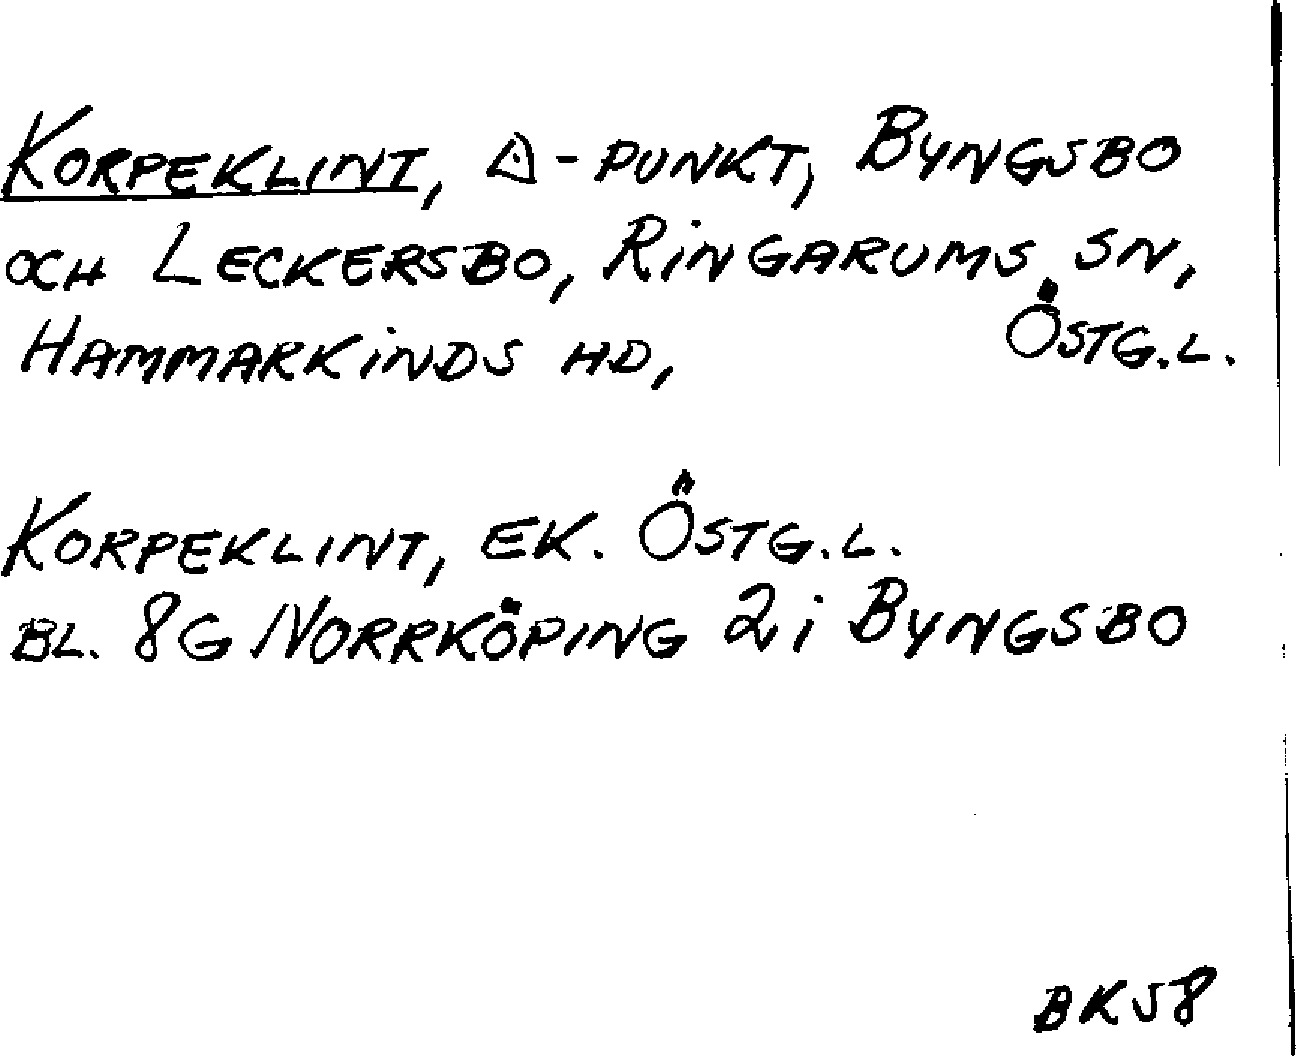 Korpeklint, △-punkt, Byngsbo
och Leckersbo, Ringarums sn,
Hammarkinds hd, Östg.l.
Korpeklint, ek. Östg.l.
bl. 8G Norrköping 2i Byngsbo
BK58